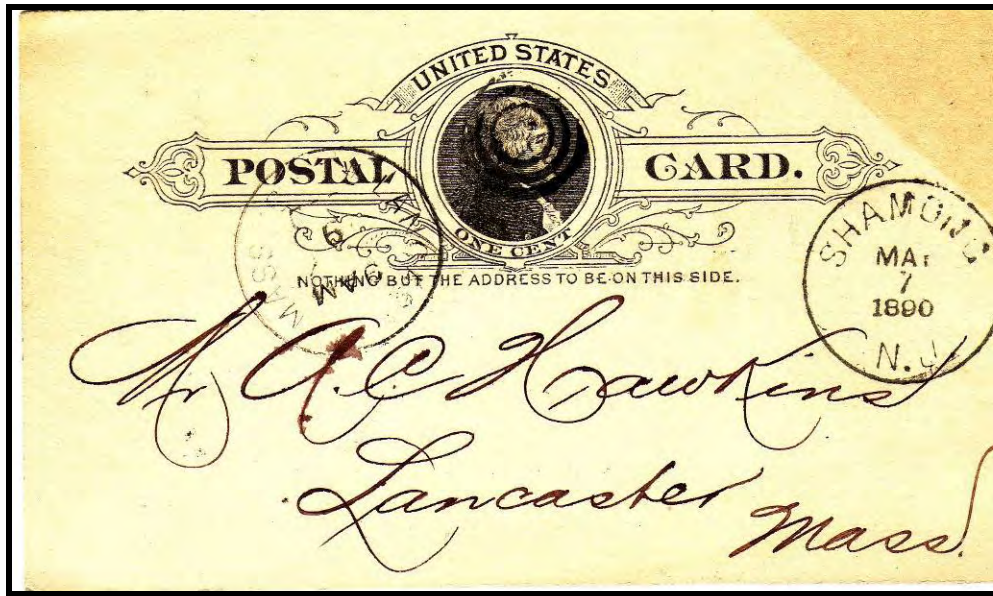 UNITED STATES
POSTAL CARD.
ONE CENT
NOTHING BUT THE ADDRESS TO BE ON THIS SIDE.
SHAMONG
MAR
7
1890
N.J.
9
AM
MASS
Mr A.C Hawkins
Lancaster
Mass.